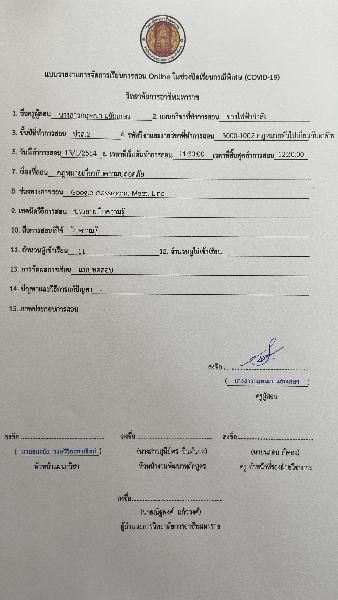 แบบรายงานการจัดการเรียนการสอน Online ในช่วงปิดเรียนกรณีพิเศษ (COVID-19)
วิทยาลัยการอาชีพมหาราช
1. ชื่อครูผู้สอน 2. แผนกวิชาที่ทำการสอน ช่างไฟฟ้ากำลัง
3. ชั้นที่ทำการสอน ปวส.2 4. รหัสวิชาและรายวิชาที่ทำการสอน 3000-1002
5. วันที่ทำการสอน 6. เวลาที่เริ่มต้นทำการสอน 11:30:00 เวลาที่สิ้นสุดทำการสอน 12:30:00
7. เรื่องที่สอน กฎหมายเกี่ยวกับความปลอดภัย
8. ช่องทางการสอน Google classroom, Meet, Line
9. เทคนิควิธีการสอน บรรยาย ใบความรู้
10. สื่อการสอนที่ใช้ ใบความรู้
11. จำนวนผู้เข้าเรียน 11 12. จำนวนผู้ไม่เข้าเรียน
13. การวัดผลการเรียน แบบทดสอบ
14. ปัญหาและวิธีการแก้ปัญหา -
15. ภาพประกอบการสอน
ลงชื่อ
ครูผู้สอน
ลงชื่อ ลงชื่อ ลงชื่อ
หัวหน้าแผนกวิชา หัวหน้างานพัฒนาหลักสูตร
ลงชื่อ
(นายณัฐพงศ์ แก้ววงศ์)
ผู้อำนวยการวิทยาลัยการอาชีพมหาราช